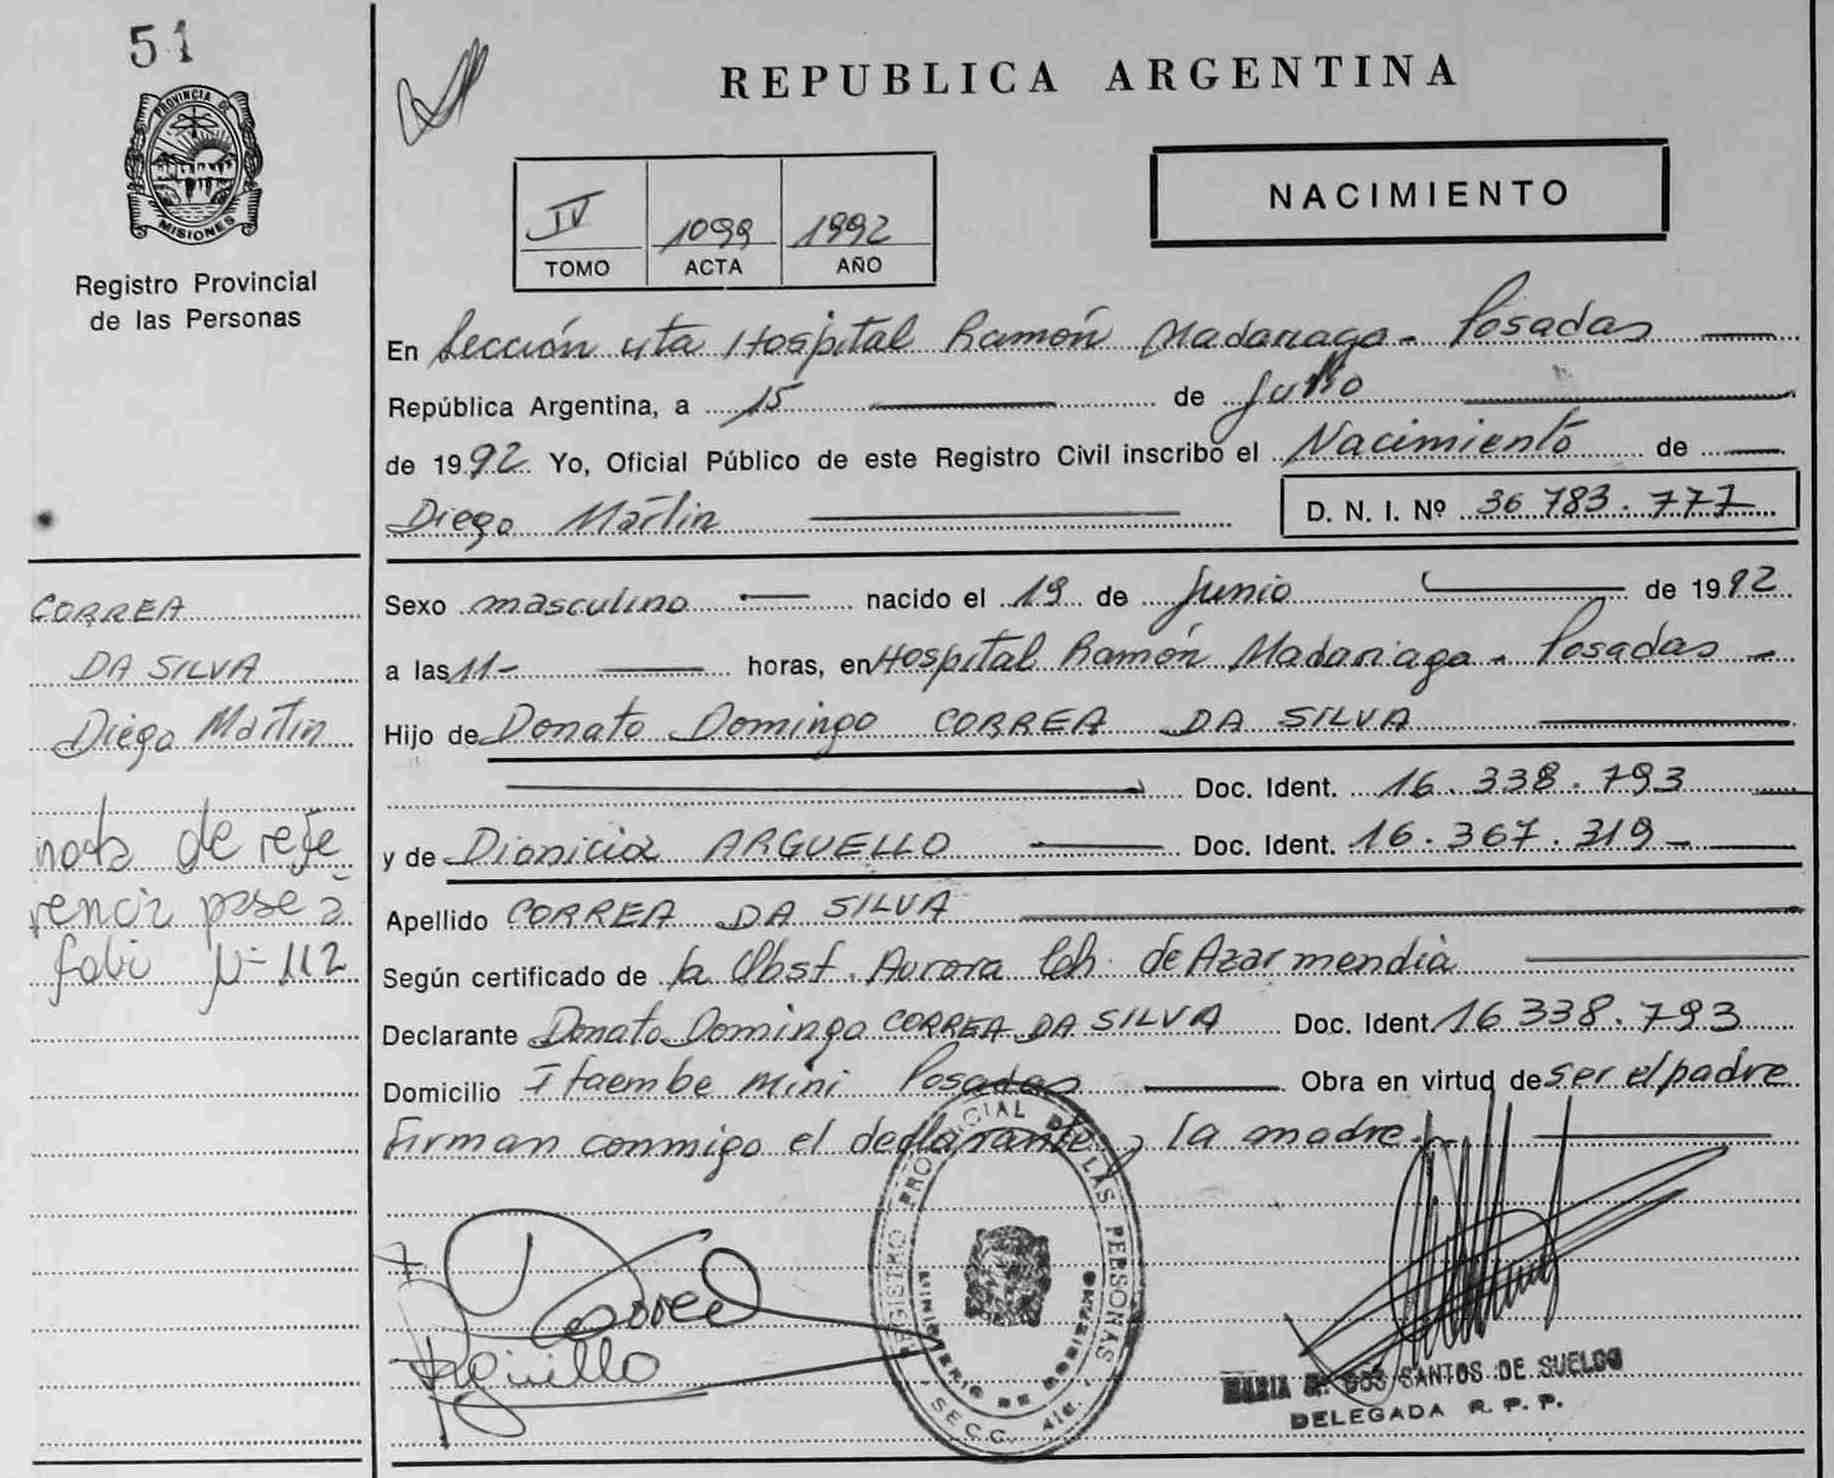 51
PROVINCIA DE
MISIONES
Registro Provincial
de las Personas
REPUBLICA ARGENTINA
IV 1099 1992
TOMO ACTA AÑO
NACIMIENTO
En Sección 4ta Hospital Ramón Madariaga - Posadas
República Argentina, a 15 de Julio
de 1992 Yo, Oficial Público de este Registro Civil inscribo el Nacimiento de
Diego Martin
D. N. I. Nº 36 783.777
CORREA
DA SILVA
Diego Martin
nota de refe
rencia pase a
folio Nº 112
Sexo masculino nacido el 19 de Junio de 1992
a las 11- horas, en Hospital Ramón Madariaga - Posadas -
Hijo de Donato Domingo CORREA DA SILVA
Doc. Ident. 16.338.793
y de Dionicia ARGUELLO Doc. Ident. 16.367.319
Apellido CORREA DA SILVA
Según certificado de la Obst. Aurora de Azarmendia
Declarante Donato Domingo CORREA DA SILVA Doc. Ident 16 338.793
Domicilio Itaembe Mini Posadas Obra en virtud de ser el padre
Firman conmigo el declarante y la madre.-
REGISTRO PROVINCIAL DE LAS PERSONAS
MINISTERIO DE GOBIERNO
SECC. 4ta.
Correa
Arguello
MARIA DOS SANTOS DE SUELDO
DELEGADA R. P. P.